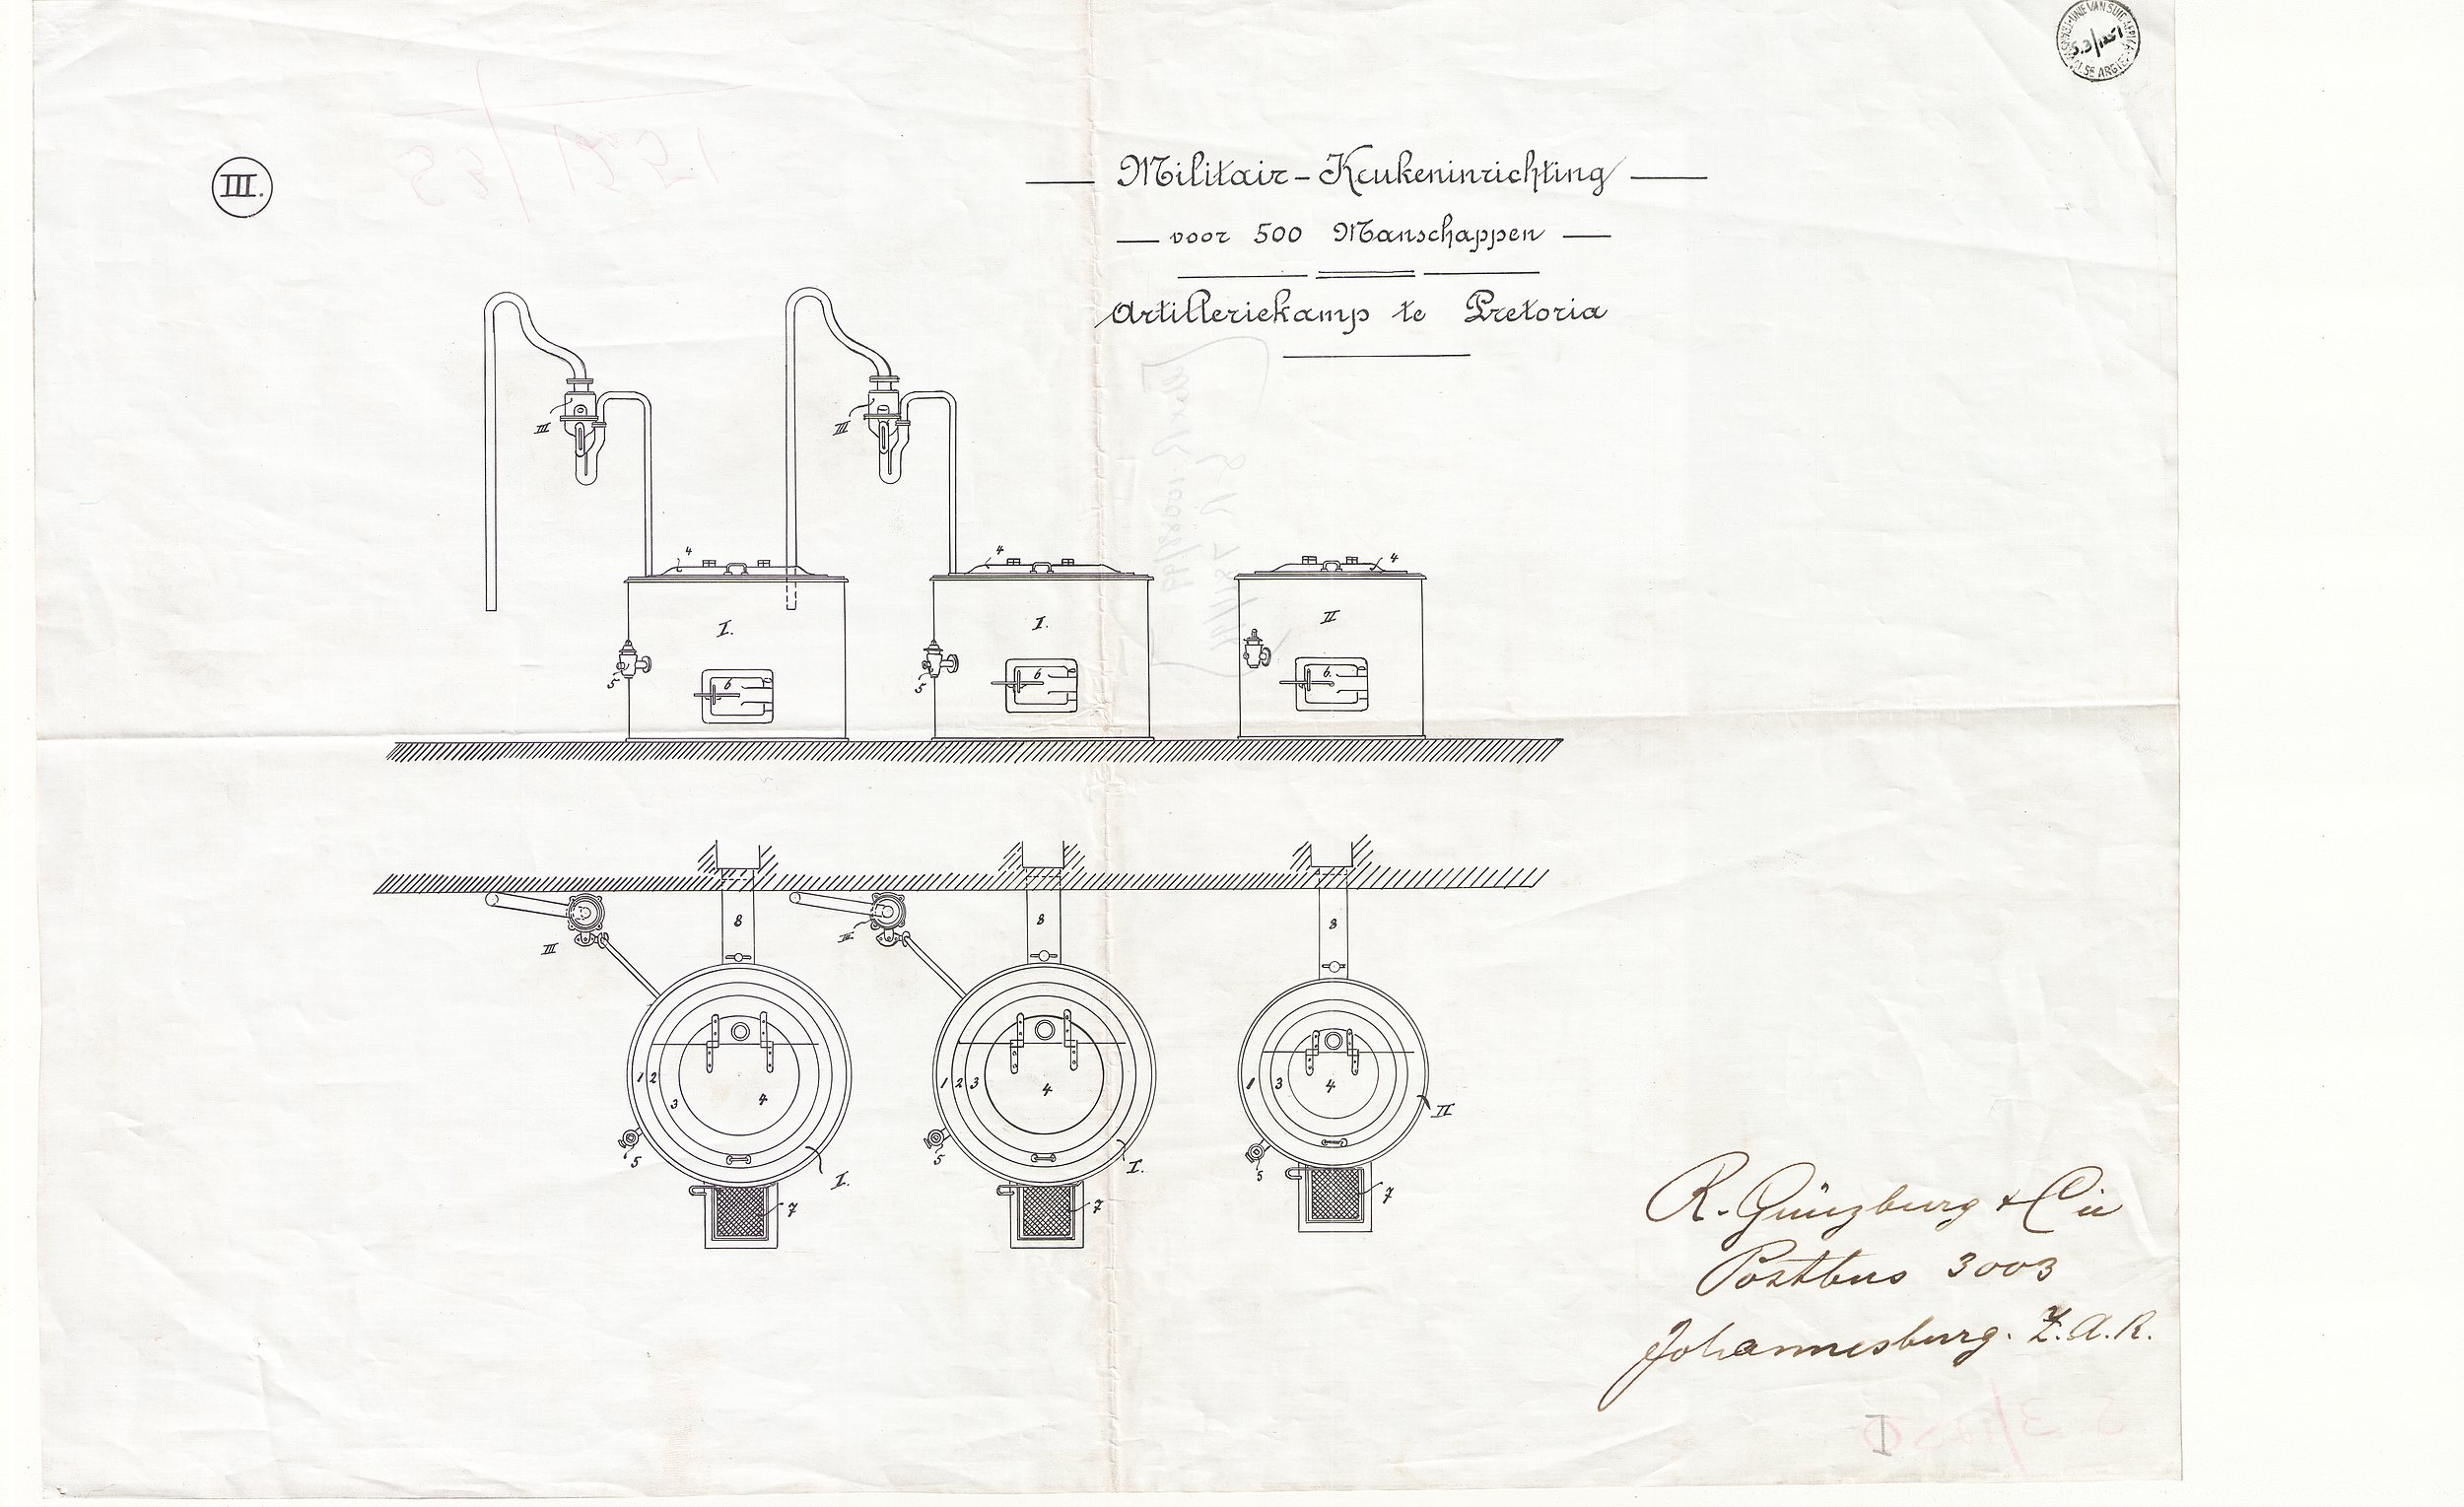 III.
Militair-Keukeninrichting
voor 500 Manschappen
Artilleriekamp te Pretoria
III
III
4
4
4
I.
I.
II
5
5
6
6
6.
8
8
8
III
III
1 2
3
4
1 2 3
4
1 3
4
II
5
5
5
I.
I.
7
7
7
R. Günzburg & Cie
Postbus 3003
Johannesburg. Z.A.R.
I